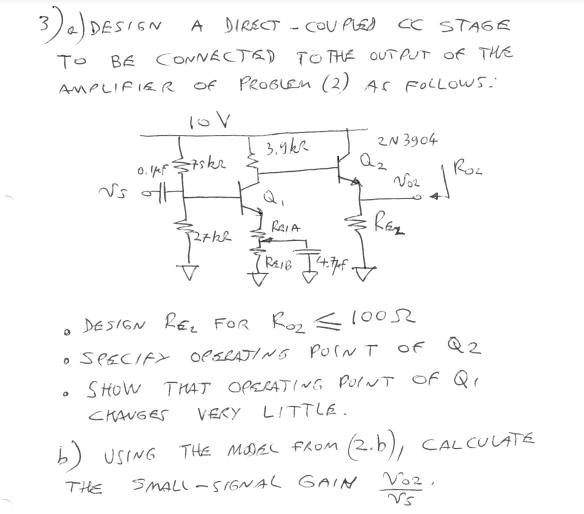 3) a) DESIGN A DIRECT-COUPLED CC STAGE
TO BE CONNECTED TO THE OUTPUT OF THE
AMPLIFIER OF PROBLEM (2) AS FOLLOWS:
10 V
3.9kΩ
2N3904
0.1μF
75kΩ
Q2
Vo2
Ro2
Vs
Q1
RE1A
RE2
27kΩ
RE1B
4.7μF
• DESIGN RE2 FOR Ro2 ≤ 100Ω
• SPECIFY OPERATING POINT OF Q2
• SHOW THAT OPERATING POINT OF Q1
CHANGES VERY LITTLE.
b) USING THE MODEL FROM (2.b), CALCULATE
THE SMALL-SIGNAL GAIN Vo2/Vs.